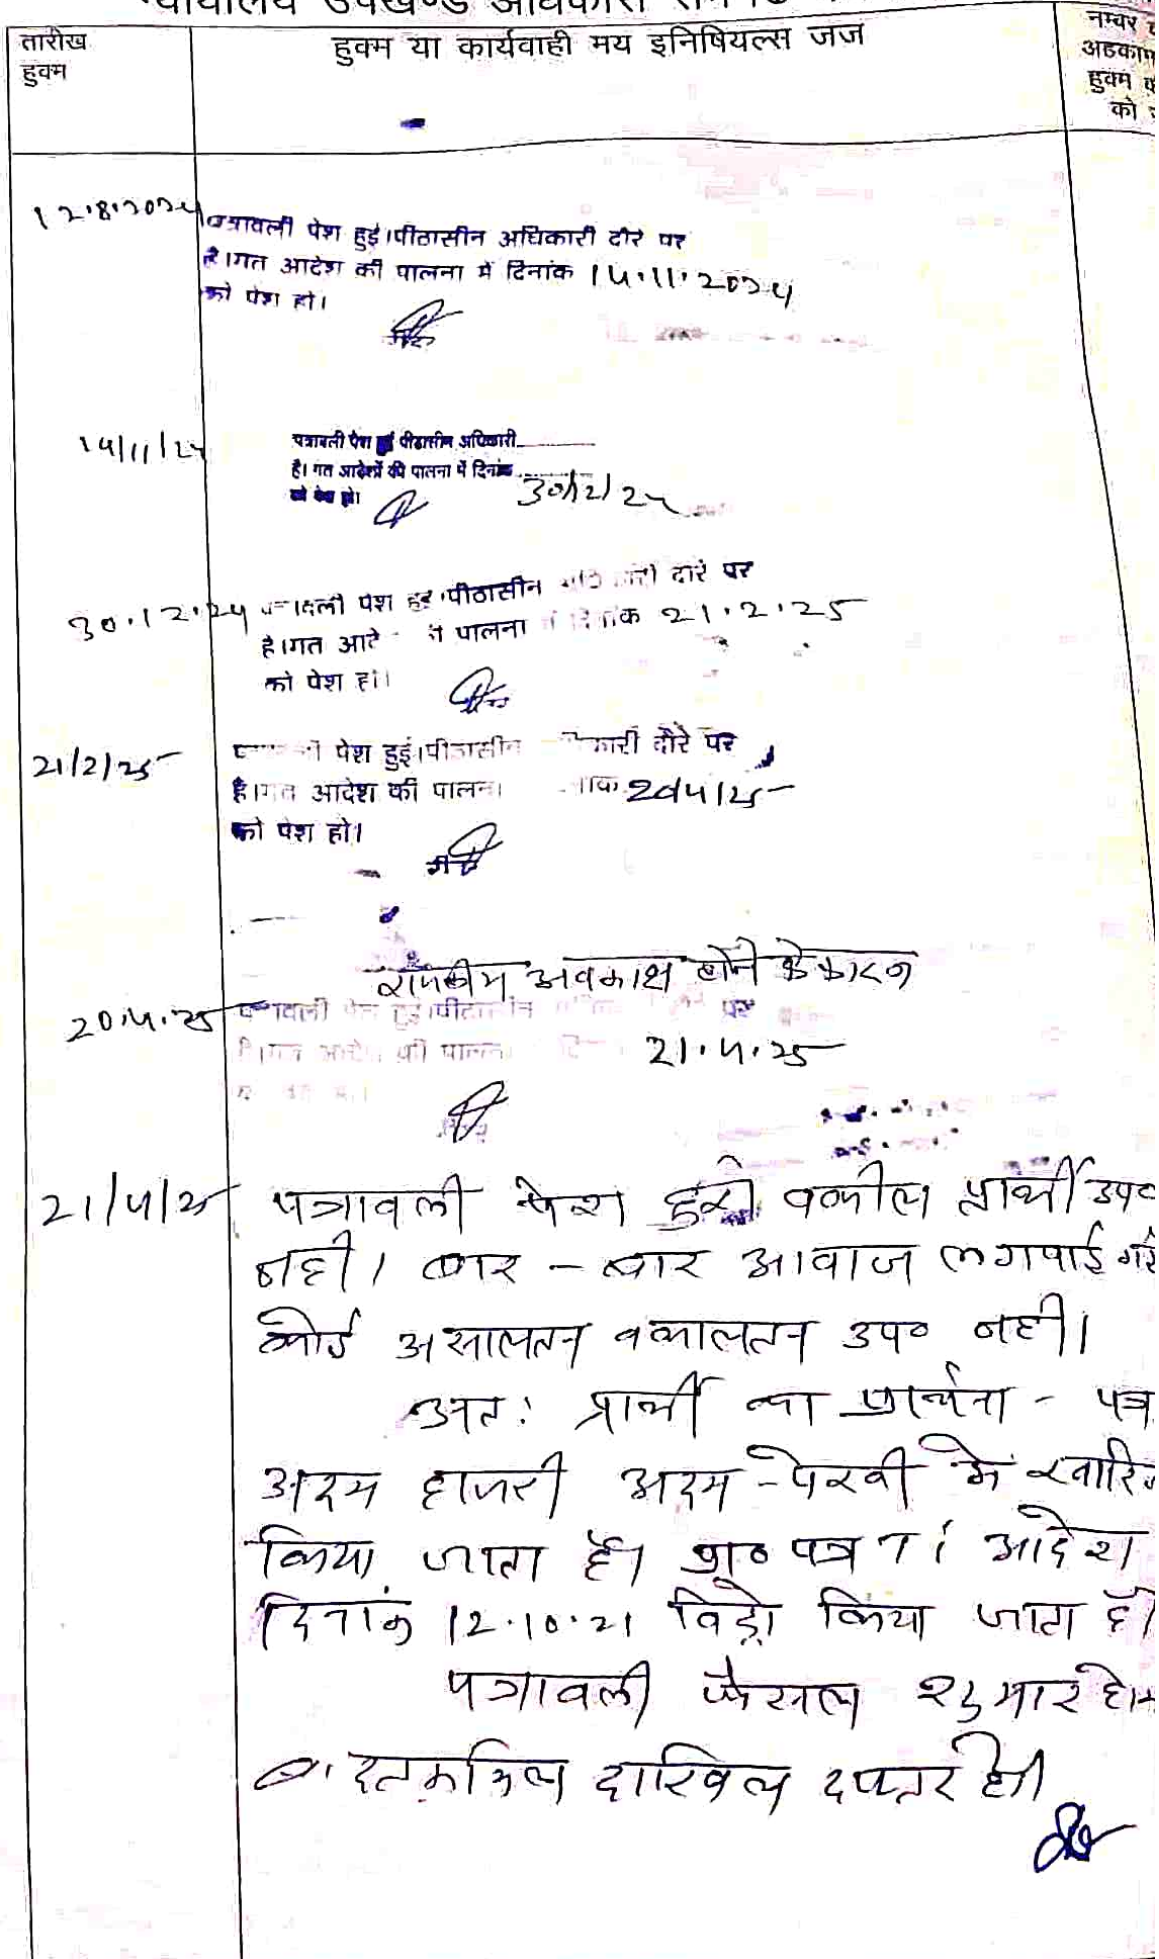 न्यायालय उपखण्ड अधिकारी
तारीख
हुक्म
हुक्म या कार्यवाही मय इनिषियल्स जज
नम्बर
अहकाम
हुक्म
को
12.8.2024 पत्रावली पेश हुई।पीठासीन अधिकारी दौरे पर
है।गत आदेश की पालना में दिनांक 14.11.2024
को पेश हो।
14/11/24 पत्रावली पेश हुई पीठासीन अधिकारी
है। गत आदेशों की पालना में दिनांक 30/12/24
को पेश हो।
30.12.24 पत्रावली पेश हुई।पीठासीन दौरे पर
है।गत पालना 21.2.25
को पेश हो।
21/2/25 पेश हुई।पीठासीन दौरे पर
है।गत आदेश की पालना 20/4/25
को पेश हो।
राजकीय अवकाश होने के कारण
20.4.25 पत्रावली पेश हुई।पीठासीन पर
की पालना 21.4.25
21/4/25 पत्रावली पेश हुई वकील प्रार्थी उप०
नही। बार - बार आवाज लगवाई गई
कोई असालतन वकालतन उप० नही।
अत: प्रार्थी का प्रार्थना - पत्र
अदम हाजरी अदम - पेरवी मे खारिज
किया जाता है। प्रा० पत्र T i आदेश
दिनांक 12.10.21 विड्रो किया जाता है।
पत्रावली फैसल शुमार होकर
बा. तकमिल दाखिल दफ्तर हो।